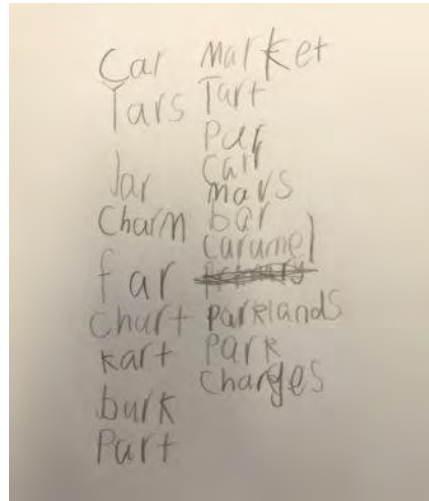 Car
Jar
Charm
far
chart
kart
bark
Part
Market
Tart
Par
mars
bar
caramel
parklands
park
charges